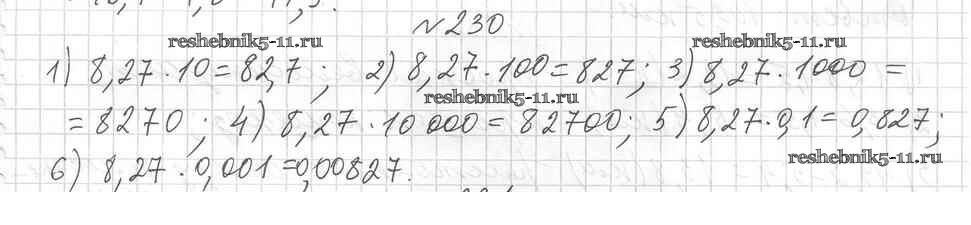 №230
reshebnik5-11.ru reshebnik5-11.ru
1) 8,27 · 10 = 82,7 ; 2) 8,27 · 100 = 827; 3) 8,27 · 1000 =
reshebnik5-11.ru
= 8270 ; 4) 8,27 · 10 000 = 82700; 5) 8,27 · 0,1 = 0,827;
reshebnik5-11.ru
6) 8,27 · 0,001 = 0,00827.